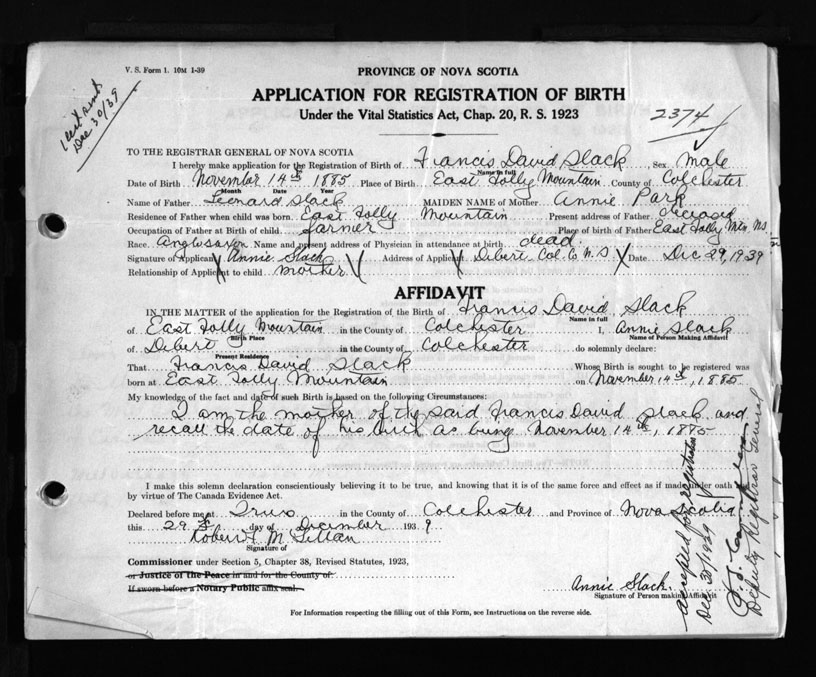 V. S. Form 1. 10M 1-39
1 cert sent
Dec 30/39
PROVINCE OF NOVA SCOTIA
APPLICATION FOR REGISTRATION OF BIRTH
Under the Vital Statistics Act, Chap. 20, R. S. 1923
2374
TO THE REGISTRAR GENERAL OF NOVA SCOTIA
I hereby make application for the Registration of Birth of Francis David Slack, Sex male
Name in full
Date of Birth November 14th 1885 Place of Birth East Folly Mountain County of Colchester
Month Date Year
Name of Father Leonard Slack MAIDEN NAME of Mother Annie Park
Residence of Father when child was born East Folly Mountain Present address of Father deceased
Occupation of Father at Birth of child farmer Place of birth of Father East Folly Mtn. N.S.
Race Anglo saxon Name and present address of Physician in attendance at birth dead.
Signature of Applicant Annie Slack Address of Applicant Debert Col. Co N.S. Date Dec 29, 1939
Relationship of Applicant to child mother
AFFIDAVIT
IN THE MATTER of the application for the Registration of the Birth of Francis David Slack
Name in full
of East Folly Mountain in the County of Colchester I, Annie Slack
Birth Place Name of Person Making Affidavit
of Debert in the County of Colchester do solemnly declare:
Present Residence
That Francis David Slack Whose Birth is sought to be registered was
born at East Folly Mountain on November 14th, 1885
My knowledge of the fact and date of such Birth is based on the following Circumstances:
I am the mother of the said Francis David Slack and
recall the date of his birth as being November 14th, 1885
I make this solemn declaration conscientiously believing it to be true, and knowing that it is of the same force and effect as if made under oath
by virtue of The Canada Evidence Act.
Declared before me at Truro in the County of Colchester and Province of Nova Scotia
this 29th day of December 1939
Robert M
Signature of
Commissioner under Section 5, Chapter 38, Revised Statutes, 1923,
or Justice of the Peace in and for the County of
If sworn before a Notary Public affix seal.
Annie Slack
Signature of Person making Affidavit
For Information respecting the filling out of this Form, see Instructions on the reverse side.
accepted for registration
Dec 30/1939
Deputy Registrar General